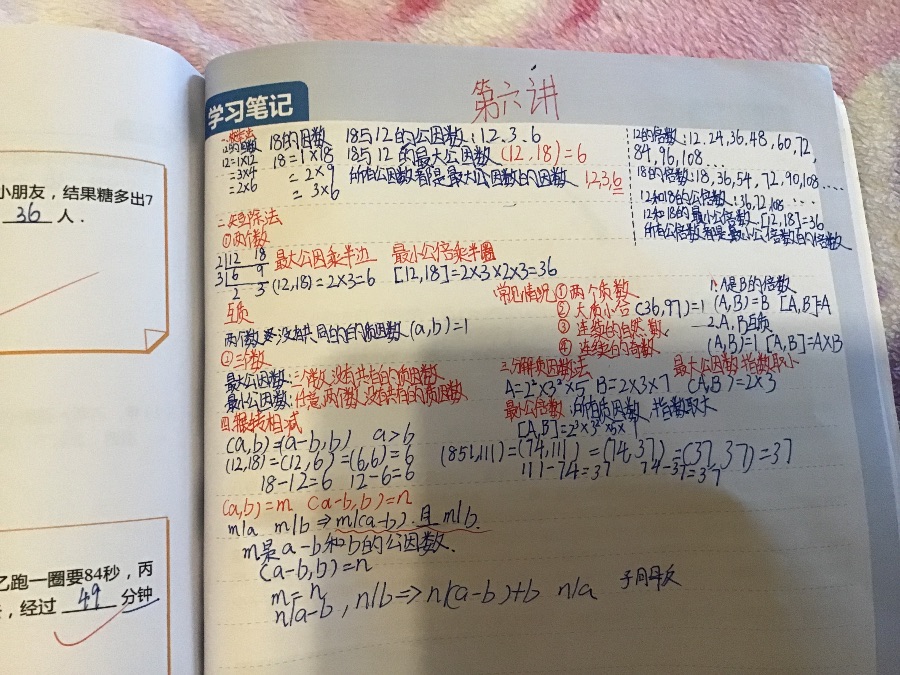 小朋友，结果糖多出7
36 人．
乙跑一圈要84秒，丙
，经过 49 分钟
学习笔记
第六讲
12的因数
12=1×12
=3×4
=2×6
18的因数
18=1×18
=2×9
=3×6
18与12的公因数：1.2.3.6
18与12的最大公因数(12,18)=6
所有公因数都是最大公因数的因数 1,2,3,6
12的倍数：12.24,36.48,60,72,
84,96,108...
18的倍数：18,36,54,72,90,108....
12和18的公倍数：36,72,108...
12和18的最小公倍数.[12,18]=36
所有公倍数都是最小公倍数的倍数
二.短除法
①两个数
2 12 18
3 6 9
2 3
最大公因乘半边 最小公倍乘半圈
(12,18)=2×3=6 [12,18]=2×3×2×3=36
互质
两个数 没有共同的质因数(a,b)=1
常见情况①两个质数
② 大质小合 (36,97)=1
③ 连续的自然数
④ 连续的奇数
1.A是B的倍数
(A,B)=B [A,B]=A
2.A,B互质
(A,B)=1 [A,B]=A×B
②三个数
最大公因数:三个数没有共有的质因数
最小公因数:任意两个数没有共有的质因数
三.分解质因数法 最大公因数:指数取小
B=2×3×7 (A,B)=2×3
最小公倍数:所有质因数,指数取大
四.辗转相减
(a,b)=(a-b,b) a>b
(12,18)=(12,6)=(6,6)=6
18-12=6 12-6=6
(851,111)=(74,111)=(74,37)=(37,37)=37
111-74=37 74-37=37
(a,b)=m (a-b,b)=n
m|a m|b⇒m|(a-b).且m|b.
m是a-b和b的公因数.
(a-b,b)=n
m=n
n|a-b,n|b=>n|(a-b)+b n|a